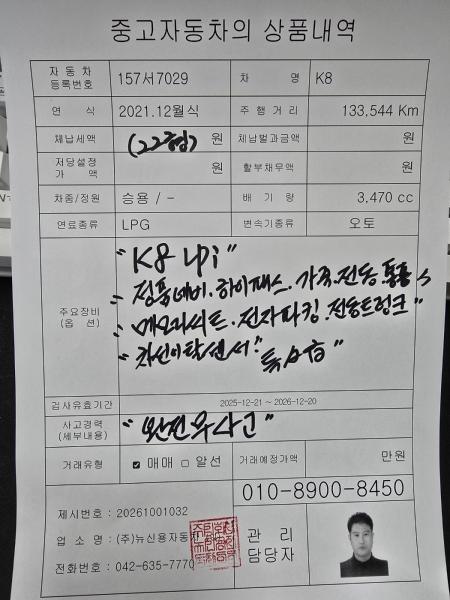 중고자동차의 상품내역
자 동 차 등록번호 157서7029 차 명 K8
연 식 2021.12월식 주 행 거 리 133,544 Km
체납세액 (22형) 원 체납벌과금액 원
저당설정 가 액 원 할부채무액 원
차종/정원 승용 / - 배 기 량 3,470 cc
연료종류 LPG 변속기종류 오토
주요장비 (옵 션)
"K8 LPi"
정품네비.하이패스.가죽.전동.통풍
메모리시트.전자파킹.전동트렁크"
차선이탈센서!
"특A급"
검사유효기간 2025-12-21 ~ 2026-12-20
사고경력 (세부내용) "완전무사고"
거래유형 ☑ 매매 □ 알선 거래예정가액 만원
010-8900-8450
제시번호 : 20261001032
업 소 명 : (주)뉴신용자동차
전화번호 : 042-635-7770
관 리
담당자